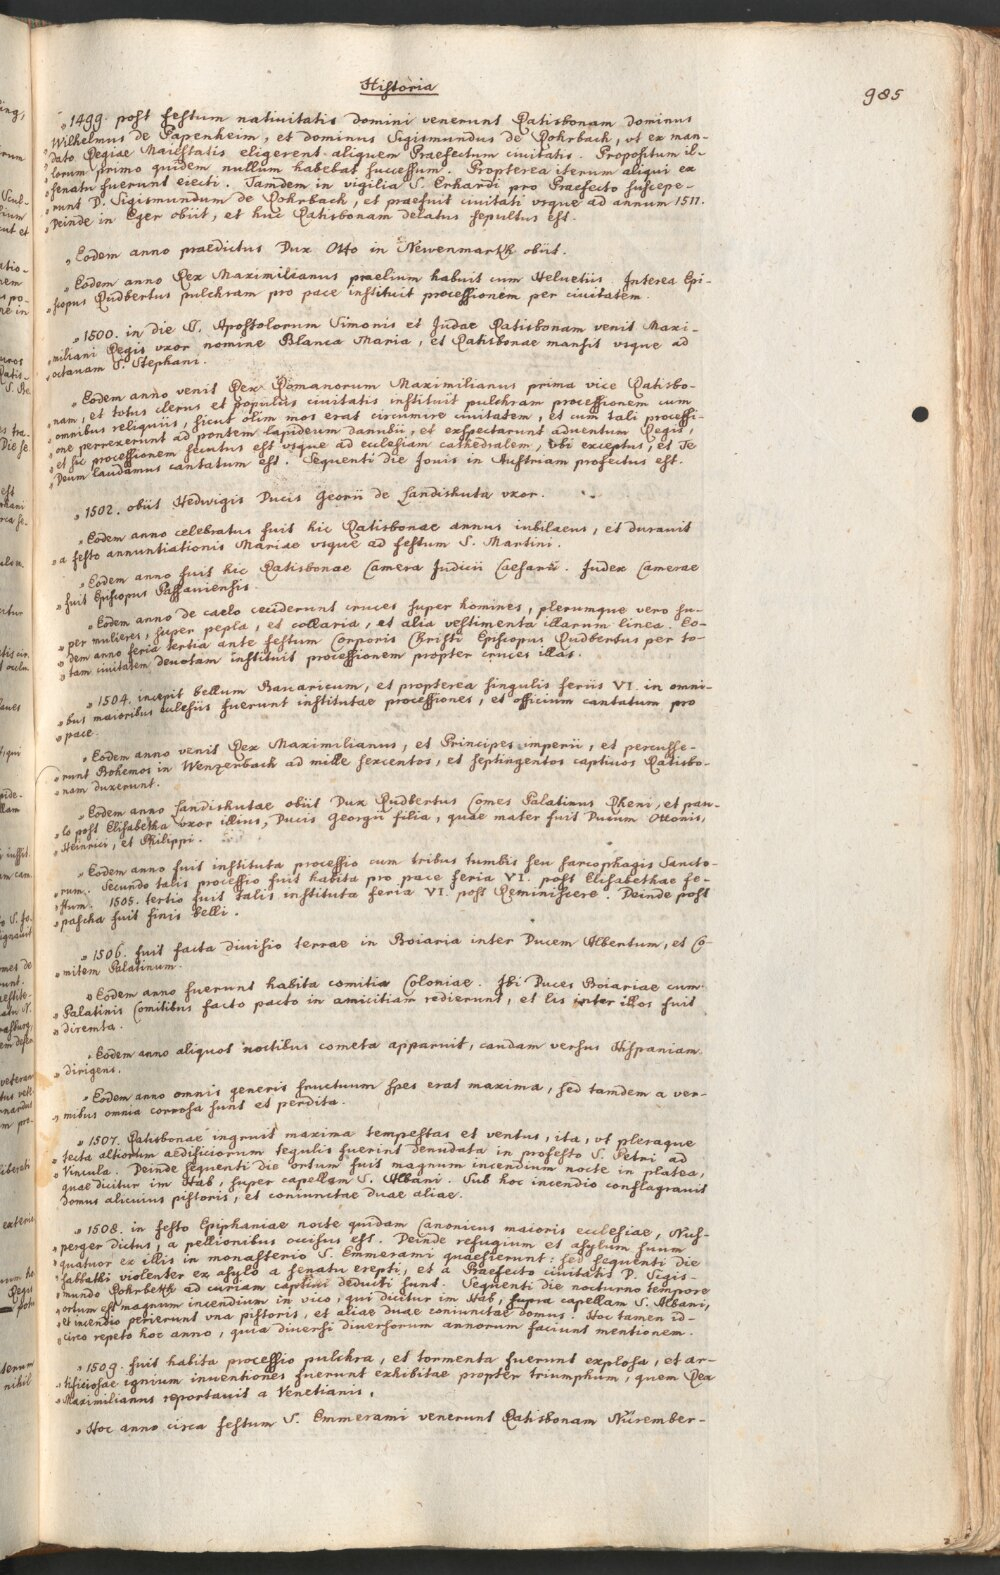 Historia
985
„ 1499. post festum nativitatis domini venerunt Ratisbonam dominus
„ Wilhelmus de Papenheim, et dominus Sigismundus de Rohrbach, ut ex man-
„ dato Regiae Maiestatis eligerent aliquem Praefectum civitatis. Propositum il-
„ lorum primo quidem nullum habebat successum. Propterea iterum aliqui ex
„ senatu fuerunt eiecti. Tamdem in vigilia S. Erhardi pro Praefecto suscepe-
„ runt D. Sigismundum de Rohrbach, et praefuit civitati usque ad annum 1511.
„ Deinde in Eger obiit, et huc Ratisbonam delatus sepultus est.
„ Eodem anno praedictus Dux Otto in Newenmarkh obiit.
„ Eodem anno Rex Maximilianus praelium habuit cum Helvetiis. Interea Epi-
„ scopus Rudbertus pulchram pro pace instituit processionem per civitatem.
„ 1500. in die SS. Apostolorum Simonis et Judae Ratisbonam venit Maxi-
„ miliani Regis uxor nomine Blanca Maria, et Ratisbonae mansit usque ad
„ octavam S. Stephani.
„ Eodem anno venit Rex Romanorum Maximilianus prima vice Ratisbo-
„ nam, et totus clerus et populus civitatis instituit pulchram processionem cum
„ omnibus reliquiis, sicut olim mos erat circumire civitatem, et cum tali processi-
„ one perrexerunt ad pontem lapideum danubii, et exspectarunt adventum Regis,
„ et sic processionem secutus est usque ad ecclesiam cathedralem, ubi exceptus, et Te
„ Deum laudamus cantatum est. Sequenti die Jovis in Austriam profectus est.
„ 1502. obiit Hedwigis Ducis Georii de Landishuta uxor.
„ Eodem anno celebratus fuit hic Ratisbonae annus iubilaeus, et duravit
„ a festo annuntiationis Mariae usque ad festum S. Martini.
„ Eodem anno fuit hic Ratisbonae Camera Judicii Caesarii. Judex Camerae
„ fuit Episcopus Passaviensis.
„ Eodem anno de caelo ceciderunt cruces super homines, plerumque vero su-
„ per mulieres, super pepla, et collaria, et alia vestimenta illarum linea. Eo-
„ dem anno feria tertia ante festum Corporis Christi Episcopus Rudbertus per to-
„ tam civitatem devotam instituit processionem propter cruces illas.
„ 1504. incepit bellum Bavaricum, et propterea singulis feriis VI. in omni-
„ bus maioribus ecclesiis fuerunt institutae processiones, et officium cantatum pro
„ pace.
„ Eodem anno venit Rex Maximilianus, et Principes imperii, et percusse-
„ runt Bohemos in Wenzenbach ad mille sexcentos, et septingentos captivos Ratisbo-
„ nam duxerunt.
„ Eodem anno Landishutae obiit Dux Rudbertus Comes Palatinus Rheni, et pau-
„ lo post Elisabetha uxor illius, Ducis Georgii filia, quae mater fuit Ducum Ottonis,
„ Heinrici, et Philippi.
„ Eodem anno fuit instituta processio cum tribus tumbis seu sarcophagis Sancto-
„ rum. Secundo talis processio fuit habita pro pace feria VI. post Elisabethae fe-
„ stum. 1505. tertio fuit talis instituta feria VI. post Reminiscere. Deinde post
„ pascha fuit finis belli.
„ 1506. fuit facta divisio terrae in Boiaria inter Ducem Albertum, et Co-
„ mitem Palatinum.
„ Eodem anno fuerunt habita comitia Coloniae. Ibi Duces Boiariae cum
„ Palatinis Comitibus facto pacto in amicitiam redierunt, et lis inter illos fuit
„ diremta.
„ Eodem anno aliquot noctibus cometa apparuit, caudam versus Hispaniam
„ dirigens.
„ Eodem anno omnis generis fructuum spes erat maxima, sed tamdem a ver-
„ mibus omnia corrosa sunt et perdita.
„ 1507. Ratisbonae ingruit maxima tempestas et ventus, ita, ut pleraque
„ tecta altiorum aedificiorum tegulis fuerint denudata in profesto S. Petri ad
„ Vincula. Deinde sequenti die ortum fuit magnum incendium nocte in platea,
„ quae dicitur im Hab, super capellam S. Albani. Sub hoc incendio conflagravit
„ domus alicuius pistoris, et coniunctae duae aliae.
„ 1508. in festo Epiphaniae nocte quidam Canonicus maioris ecclesiae, Nus-
„ perger dictus, a pellionibus occisus est. Deinde refugium et asylum suum
„ quatuor ex illis in monasterio S. Emmerami quaesierunt: sed sequenti die
„ sabbathi violenter ex asylo a senatu erepti, et a Praefecto civitatis D. Sigis-
„ mundo Rohrbekh ad curiam captivi deducti sunt. Sequenti die nocturno tempore
„ ortum est magnum incendium in vico, qui dicitur im Hab, supra capellam S. Albani,
„ et incendio perierunt una pistoris, et aliae duae coniunctae domus. Hoc tamen id-
„ circo repeto hoc anno, quia diversi diversorum annorum faciunt mentionem.
„ 1509. fuit habita processio pulchra, et tormenta fuerunt explosa, et ar-
„ tificiosae ignium inventiones fuerunt exhibitae propter triumphum, quem Rex
„ Maximilianus reportavit a Venetianis.
„ Hoc anno circa festum S. Emmerami venerunt Ratisbonam Nürember-